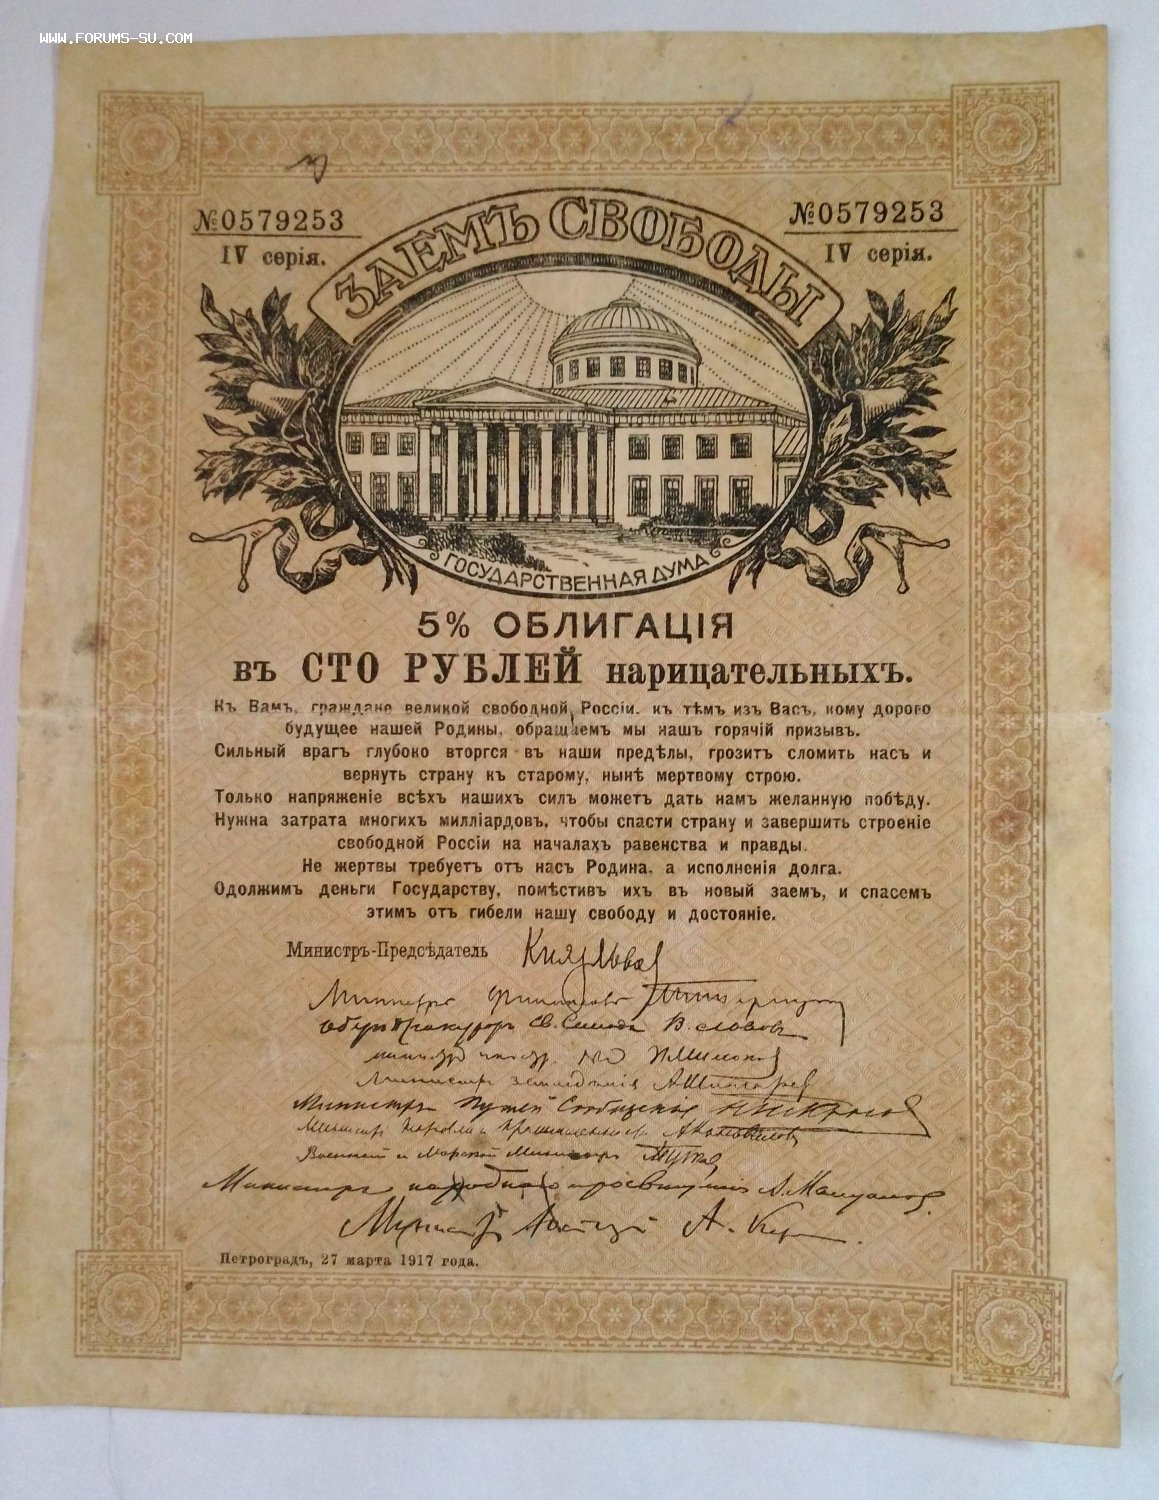 WWW.FORUMS-SU.COM
№0579253
IV серія.
№0579253
IV серія.
ЗАЕМЪ СВОБОДЫ
ГОСУДАРСТВЕННАЯ ДУМА
5% ОБЛИГАЦІЯ
въ СТО РУБЛЕЙ нарицательныхъ.
Къ Вамъ, граждане великой свободной Россіи, къ тѣмъ изъ Васъ, кому дорого
будущее нашей Родины, обращаемъ мы нашъ горячій призывъ.
Сильный врагъ глубоко вторгся въ наши предѣлы, грозитъ сломить насъ и
вернуть страну къ старому, нынѣ мертвому строю.
Только напряженіе всѣхъ нашихъ силъ можетъ дать намъ желанную побѣду.
Нужна затрата многихъ милліардовъ, чтобы спасти страну и завершить строеніе
свободной Россіи на началахъ равенства и правды.
Не жертвы требуетъ отъ насъ Родина, а исполненія долга.
Одолжимъ деньги Государству, помѣстивъ ихъ въ новый заемъ, и спасемъ
этимъ отъ гибели нашу свободу и достояніе.
Министръ-Предсѣдатель Князь Львов
Министръ Финансовъ
Оберъ Прокуроръ Св. Синода В. Львовъ
Министръ
Министръ земледѣлія А. Шингарев
Министръ Путей Сообщенія
Министръ Торговли и Промышленности А Коновалов
Военный и Морской Министръ
Министръ народнаго просвѣщенія А. Мануйлов
Министръ Юстиціи А. Кер
Петроградъ, 27 марта 1917 года.